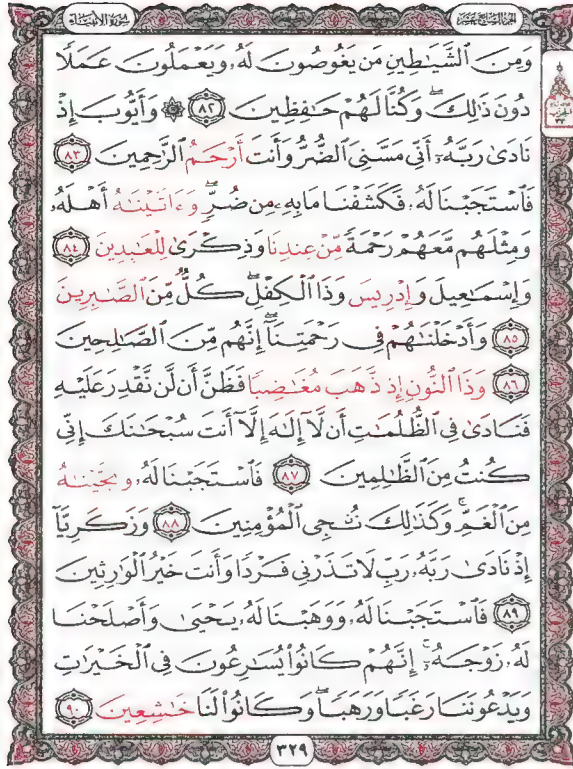 سُورَةُ الأَنْبِيَاء
الجُزْءُ السَّابِعَ عَشَرَ
وَمِنَ ٱلشَّيَـٰطِينِ مَن يَغُوصُونَ لَهُۥ وَيَعْمَلُونَ عَمَلًا
دُونَ ذَٰلِكَ ۖ وَكُنَّا لَهُمْ حَـٰفِظِينَ ٨٢ ۞ وَأَيُّوبَ إِذْ
نَادَىٰ رَبَّهُۥٓ أَنِّى مَسَّنِىَ ٱلضُّرُّ وَأَنتَ أَرْحَمُ ٱلرَّٰحِمِينَ ٨٣
فَٱسْتَجَبْنَا لَهُۥ فَكَشَفْنَا مَا بِهِۦ مِن ضُرٍّ ۖ وَءَاتَيْنَـٰهُ أَهْلَهُۥ
وَمِثْلَهُم مَّعَهُمْ رَحْمَةً مِّنْ عِندِنَا وَذِكْرَىٰ لِلْعَـٰبِدِينَ ٨٤
وَإِسْمَـٰعِيلَ وَإِدْرِيسَ وَذَا ٱلْكِفْلِ ۖ كُلٌّ مِّنَ ٱلصَّـٰبِرِينَ
٨٥ وَأَدْخَلْنَـٰهُمْ فِى رَحْمَتِنَآ ۖ إِنَّهُم مِّنَ ٱلصَّـٰلِحِينَ
٨٦ وَذَا ٱلنُّونِ إِذ ذَّهَبَ مُغَـٰضِبًا فَظَنَّ أَن لَّن نَّقْدِرَ عَلَيْهِ
فَنَادَىٰ فِى ٱلظُّلُمَـٰتِ أَن لَّآ إِلَـٰهَ إِلَّآ أَنتَ سُبْحَـٰنَكَ إِنِّى
كُنتُ مِنَ ٱلظَّـٰلِمِينَ ٨٧ فَٱسْتَجَبْنَا لَهُۥ وَنَجَّيْنَـٰهُ
مِنَ ٱلْغَمِّ ۚ وَكَذَٰلِكَ نُـۨجِى ٱلْمُؤْمِنِينَ ٨٨ وَزَكَرِيَّآ
إِذْ نَادَىٰ رَبَّهُۥ رَبِّ لَا تَذَرْنِى فَرْدًا وَأَنتَ خَيْرُ ٱلْوَٰرِثِينَ
٨٩ فَٱسْتَجَبْنَا لَهُۥ وَوَهَبْنَا لَهُۥ يَحْيَىٰ وَأَصْلَحْنَا
لَهُۥ زَوْجَهُۥٓ ۚ إِنَّهُمْ كَانُوا۟ يُسَـٰرِعُونَ فِى ٱلْخَيْرَٰتِ
وَيَدْعُونَنَا رَغَبًا وَرَهَبًا ۖ وَكَانُوا۟ لَنَا خَـٰشِعِينَ ٩٠
٣٢٩